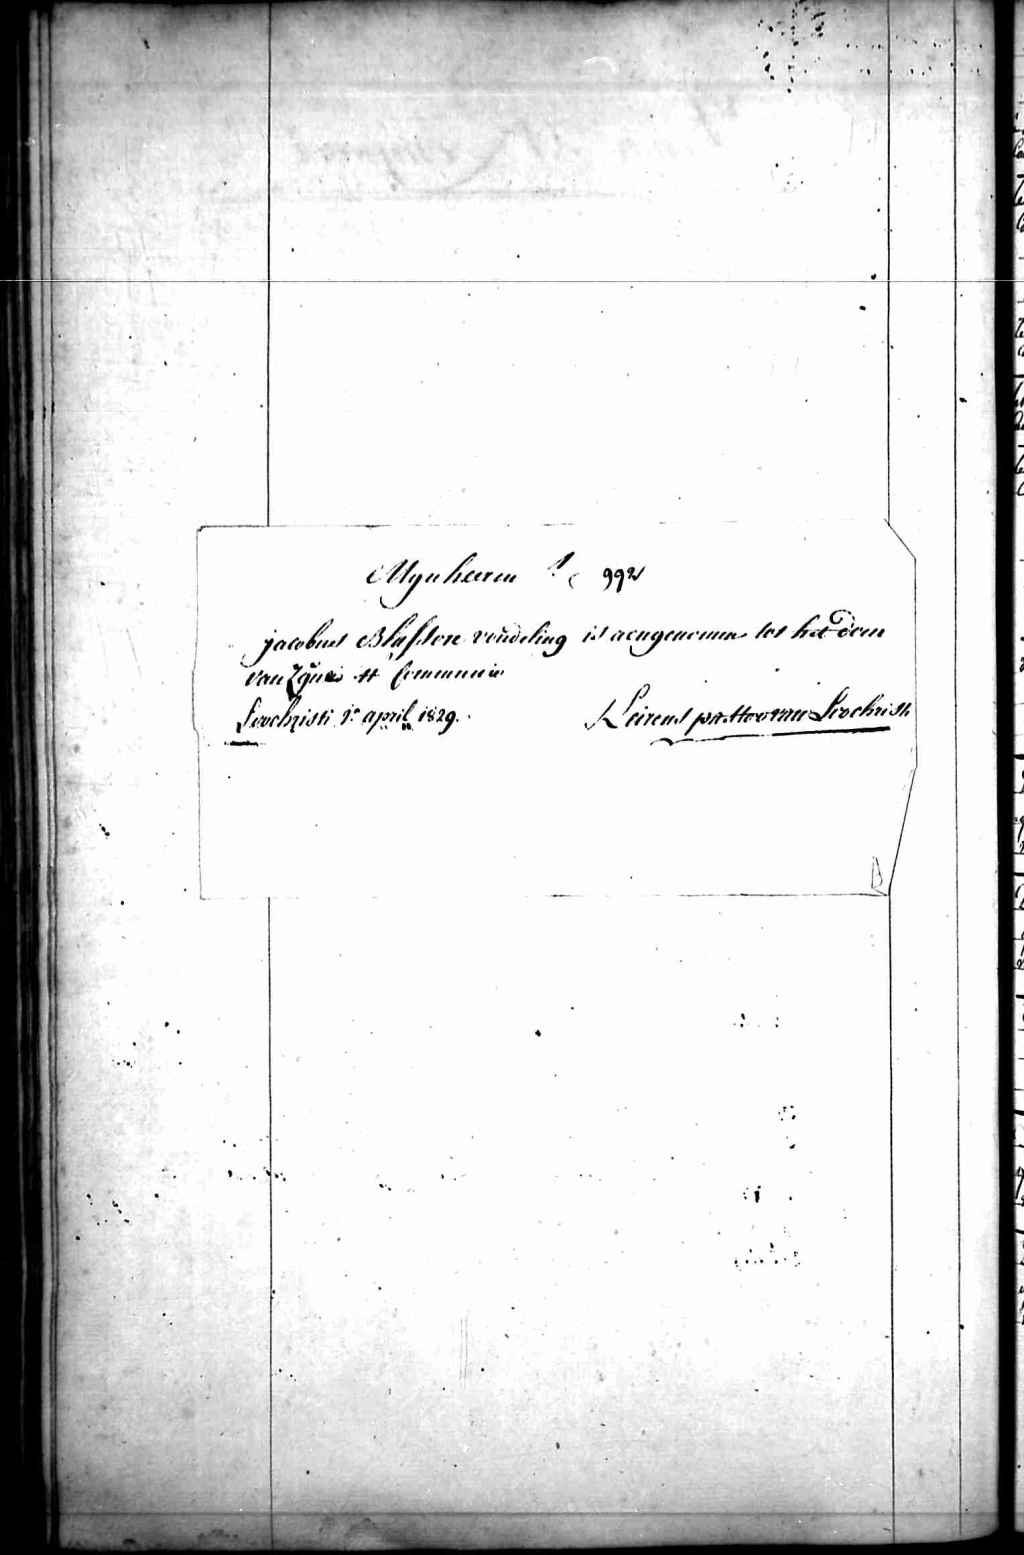 Mynheeren ! 992
jacobus Blusstere vondeling is aengenomen tot het doen
van Zyne 1e Communie
Loochristi 1e april 1829.
Leirens pastoor van Loochristi